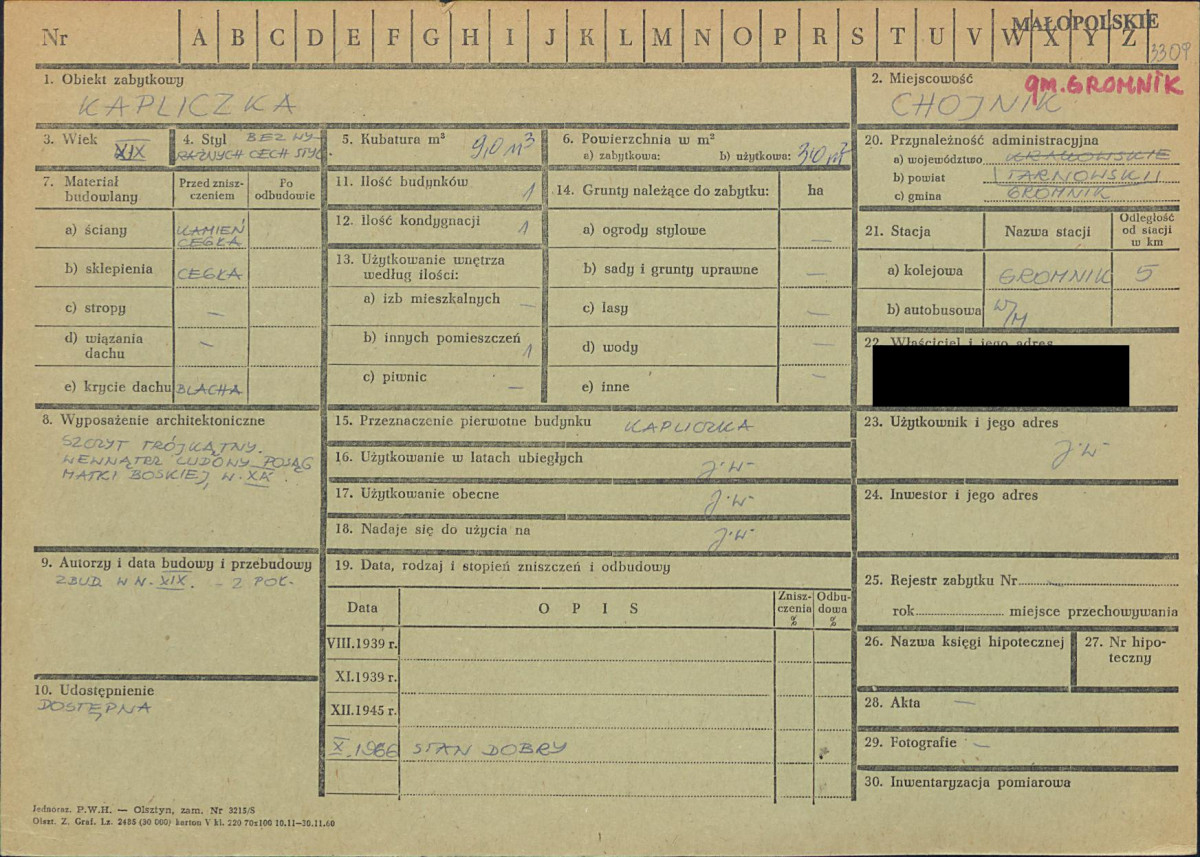 Nr A B C D E F G H I J K L M N O P R S T U V W X Y Z
MAŁOPOLSKIE
3309
1. Obiekt zabytkowy
KAPLICZKA
2. Miejscowość
gm. GROMNIK
CHOJNIK
3. Wiek XIX
4. Styl BEZ WY-
RAŹNYCH CECH STYL.
5. Kubatura m³ 9,0 m³
6. Powierzchnia w m²
a) zabytkowa: b) użytkowa: 3,0 m²
7. Materiał budowlany
Przed znisz-
czeniem
Po
odbudowie
a) ściany KAMIEŃ
CEGŁA
b) sklepienia CEGŁA
c) stropy –
d) wiązania
dachu –
e) krycie dachu BLACHA
8. Wyposażenie architektoniczne
SZCZYT TRÓJKĄTNY.
WEWNĄTRZ LUDOWY POSĄG
MATKI BOSKIEJ, W. XIX.
9. Autorzy i data budowy i przebudowy
ZBUD. W W. XIX. – 2 POŁ.
10. Udostępnienie
DOSTĘPNA
11. Ilość budynków 1
12. Ilość kondygnacji 1
13. Użytkowanie wnętrza
według ilości:
a) izb mieszkalnych –
b) innych pomieszczeń 1
c) piwnic –
14. Grunty należące do zabytku: ha
a) ogrody stylowe –
b) sady i grunty uprawne –
c) lasy –
d) wody –
e) inne –
15. Przeznaczenie pierwotne budynku KAPLICZKA
16. Użytkowanie w latach ubiegłych j.w.
17. Użytkowanie obecne j.w.
18. Nadaje się do użycia na j.w.
19. Data, rodzaj i stopień zniszczeń i odbudowy
Data O P I S Znisz-
czenia
%
Odbu-
dowa
%
VIII.1939 r.
XI.1939 r.
XII.1945 r.
X.1966 STAN DOBRY
20. Przynależność administracyjna
a) województwo KRAKOWSKIE
b) powiat TARNOWSKI
c) gmina GROMNIK
21. Stacja Nazwa stacji Odległość
od stacji
w km
a) kolejowa GROMNIK 5
b) autobusowa W/M
22. Właściciel i jego adres
23. Użytkownik i jego adres
j.w.
24. Inwestor i jego adres
25. Rejestr zabytku Nr
rok miejsce przechowywania
26. Nazwa księgi hipotecznej
27. Nr hipo-
teczny
28. Akta –
29. Fotografie –
30. Inwentaryzacja pomiarowa
Jednoraz. P.W.H. — Olsztyn, zam. Nr 3215/S
Olszt. Z. Graf. Lz. 2485 (30 000) karton V kl. 220 70x100 10.11—30.11.60